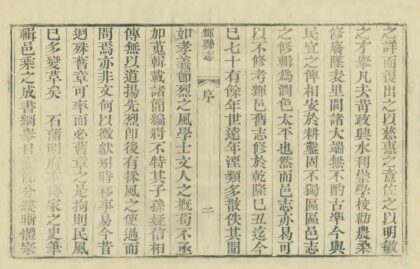 之詳而復出之以慈惠之意佐之以明敏
之才舉凡夫苛政興水利崇學校勸農桑
修廢墜表里閭諸大端無不酌古準今與
民宜之俾相安於耕鑿固不獨區區邑志
之修輯為潤色太平也然而邑志亦曷可
以不修考輝邑舊志修於乾隆己丑迄今
已七十有餘年世遠年湮類多散佚其間
輝縣志
序
二
如孝義節烈之風學士文人之概苟不亟
加蒐輯載諸簡編將不特其子孫疑信相
傳無以道揚先烈即後有採風之使過而
問焉亦非文何以徵獻矧時移事易今昔
迥殊舊章可率而必舊章之是拘則民風
已多變革矣 石藩明 傳家之史筆
輯邑乘之成書綱舉目 條分縷晰體宗